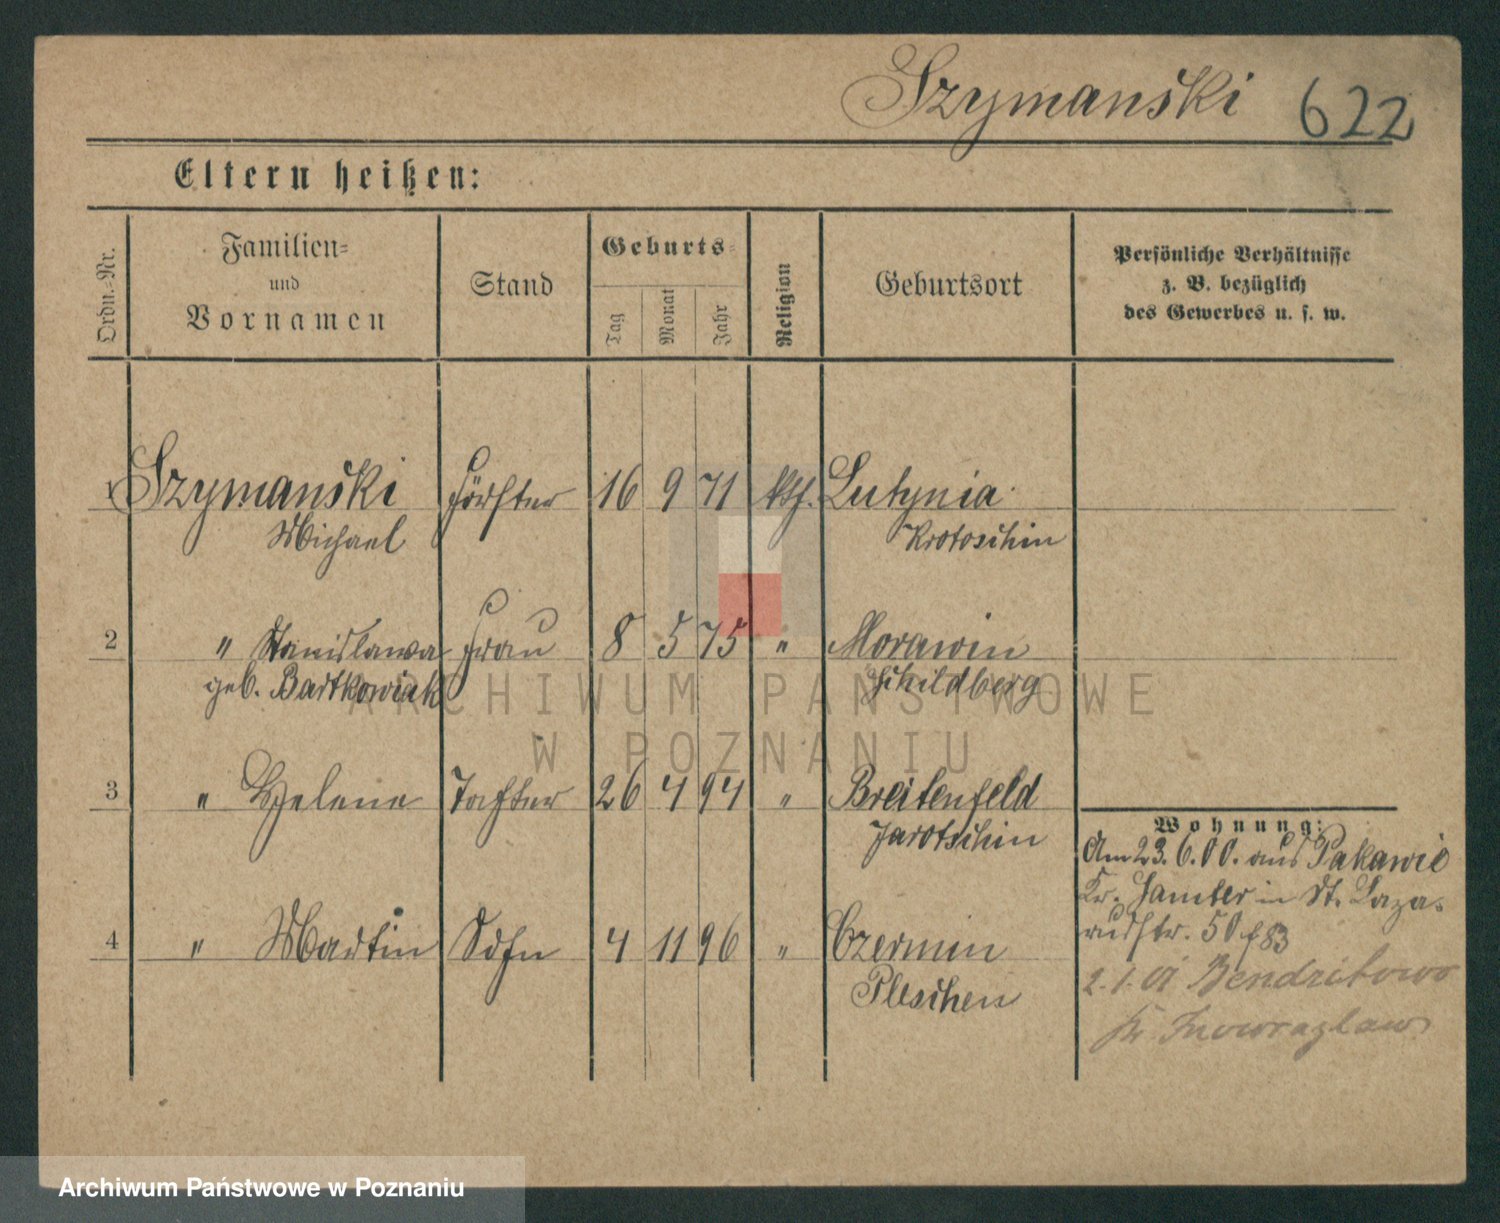 Szymanski 622
Eltern heißen:
Ordn.-Nr.
Familien-
und
Vornamen
Stand
Geburts-
Tag
Monat
Jahr
Religion
Geburtsort
Persönliche Verhältnisse
z. B. bezüglich
des Gewerbes u. s. w.
1 Szymanski Förster 16 9 71 kth. Lutynia
Michael Krotoschin
2 " Stanislawa Frau 8 5 75 " Morawin
geb. Bartkowiak Schildberg
ARCHIWUM PAŃSTWOWE
W POZNANIU
3 " Helene Tochter 26 4 94 " Breitenfeld
Jarotschin
Wohnung:
Am 23.6.00. aus Pakawie
Kr. Samter in St. Laza-
4 " Martin Sohn 4 11 96 " Czermin
russtr. 50 f 83
Pleschen
2.1.01 Bendzitowo
Kr. Inowrazlaw
Archiwum Państwowe w Poznaniu